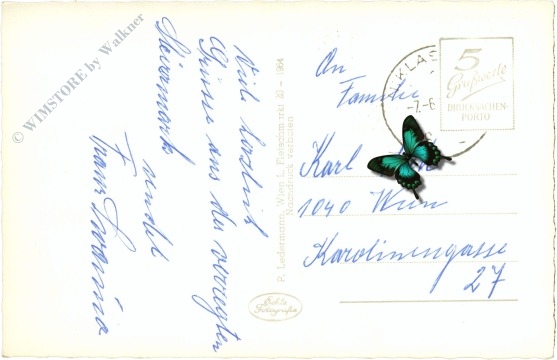 Viele herzliche
Grüsse aus der verregten
Steiermark
sendet
Fam.
An
Familie
Karl
1040 Wien
Karolinengasse
27
5
Grußworte
DRUCKSACHEN-
PORTO
KLAS
-7.-6
P. Ledermann, Wien I., Fleischmarkt 20 - 1964
Nachdruck verboten
Echte
Fotografie
© WIMSTORE by Walkner